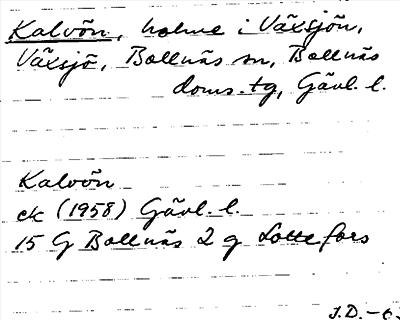 Kalvön, holme i Växsjön,
Växsjö, Bollnäs sn, Bollnäs
doms. tg, Gävl. l.
Kalvön
ek (1958) Gävl. l.
15 G Bollnäs 2 g Lottefors
J.D. -63